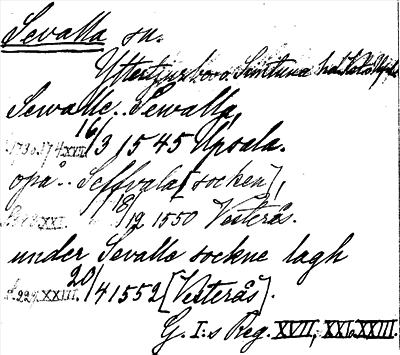 Sevalla sn.
Yttertjurbo o. Simtuna hd.
Sewalle.. Sewalla,
XVII. 16/3 1545 Upsala.
opå.. Seffvala [socken],
XXI. 18/12 1550 Vesterås.
under Sevalle sockne lagh
XXIII. 20/4 1552 [Vesterås].
G. I:s Reg. XVII, XXI, XXIII.